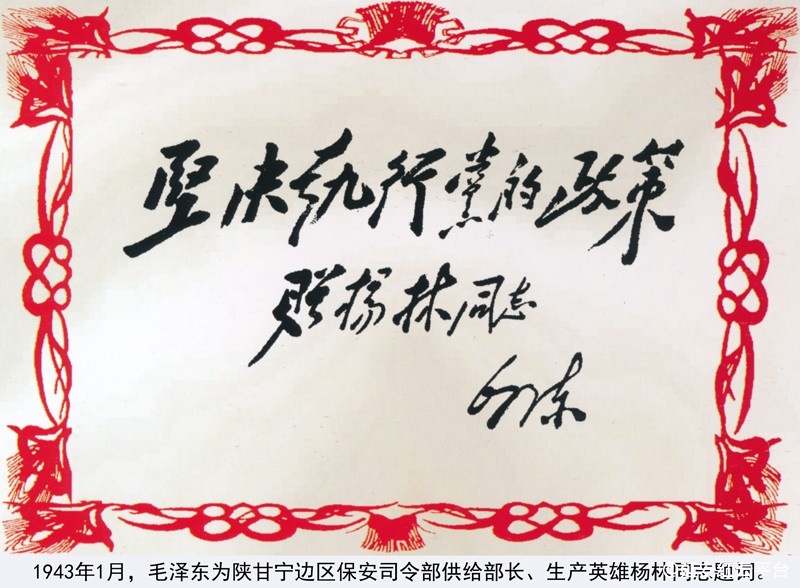 堅决执行黨的政策
贈楊林同志
毛泽东
1943年1月，毛泽东为陕甘宁边区保安司令部供给部长、生产英雄杨林同志题词。
平台